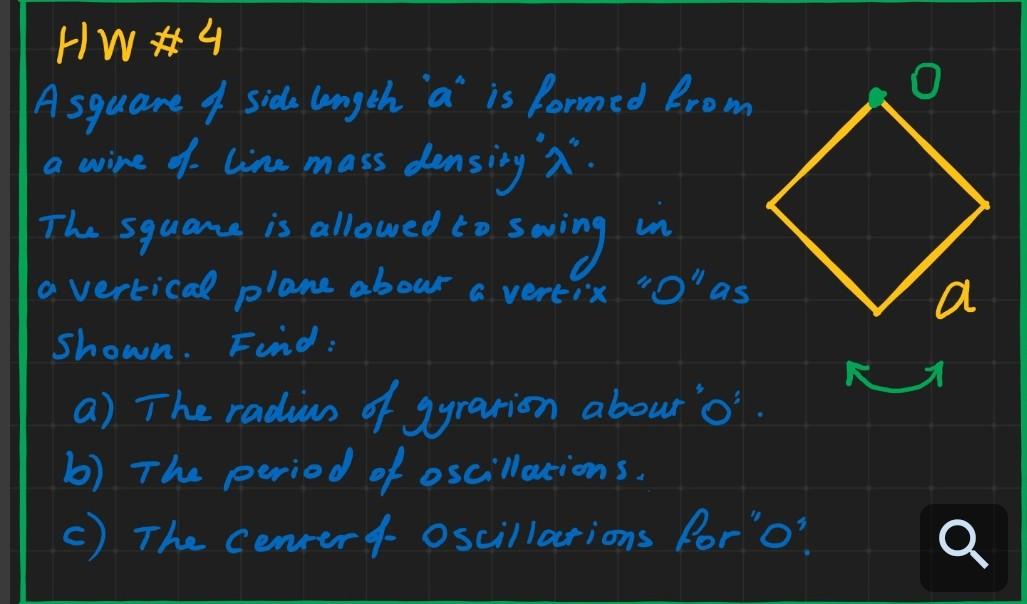 HW # 4
A square of side length "a" is formed from
a wire of line mass density "λ".
The square is allowed to swing in
a vertical plane about a vertix "O" as
shown. Find:
a) The radius of gyration about "O".
b) The period of oscillations.
c) The center of oscillations for "O".
O
a